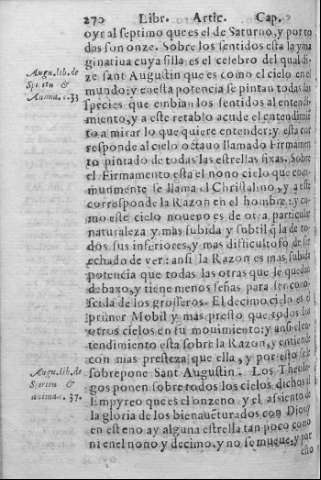 270 Libr. Artic. Cap.
oye al septimo que es el de Saturno, y por to
das son onze. Sobre los sentidos esta la yma
ginatiua cuya silla es el celebro del qual di-
ze sant Augustin que es como el cielo en el
mundo: y en esta potencia se pintan todas las
species que embian los sentidos al entendi-
miento, y a este retablo acude el entendimiẽ
to a mirar lo que quiere entender: y esta cor
responde al cielo octauo llamado Firmamen
to pintado de todas las estrellas fixas. Sobre
el Firmamento esta el nono cielo que com
munmente se llama el Christalino, y a este
corresponde la Razon en el hombre: y co-
mo este cielo noueno es de otra particular
naturaleza y mas subida y subtil q̃ la de to-
dos sus inferiores, y mas difficultoso de ser
echado de ver: ansi la Razon es mas subida
potencia que todas las otras que le quedan
debaxo, y tiene menos señas para ser cono-
scida de los grosseros. El decimo cielo es el
primer Mobil y mas presto que todos los
otros cielos en su mouimiento: y ansi el en-
tendimiento esta sobre la Razon, y entiende
con mas presteza que ella, y por esto se le
sobrepone Sant Augustin. Los Theolo-
gos ponen sobre todos los cielos dichos al
Empyreo que es el onzeno y el assiento de
la gloria de los bienauẽturados con Dios: y
en este no ay alguna estrella tan poco como
ni en el nono y decimo, y no se mueue, y por
Augu. lib. de
Spiritu &
Anima. c. 33
Augu. lib. de
Spiritu &
anima. c. 37.